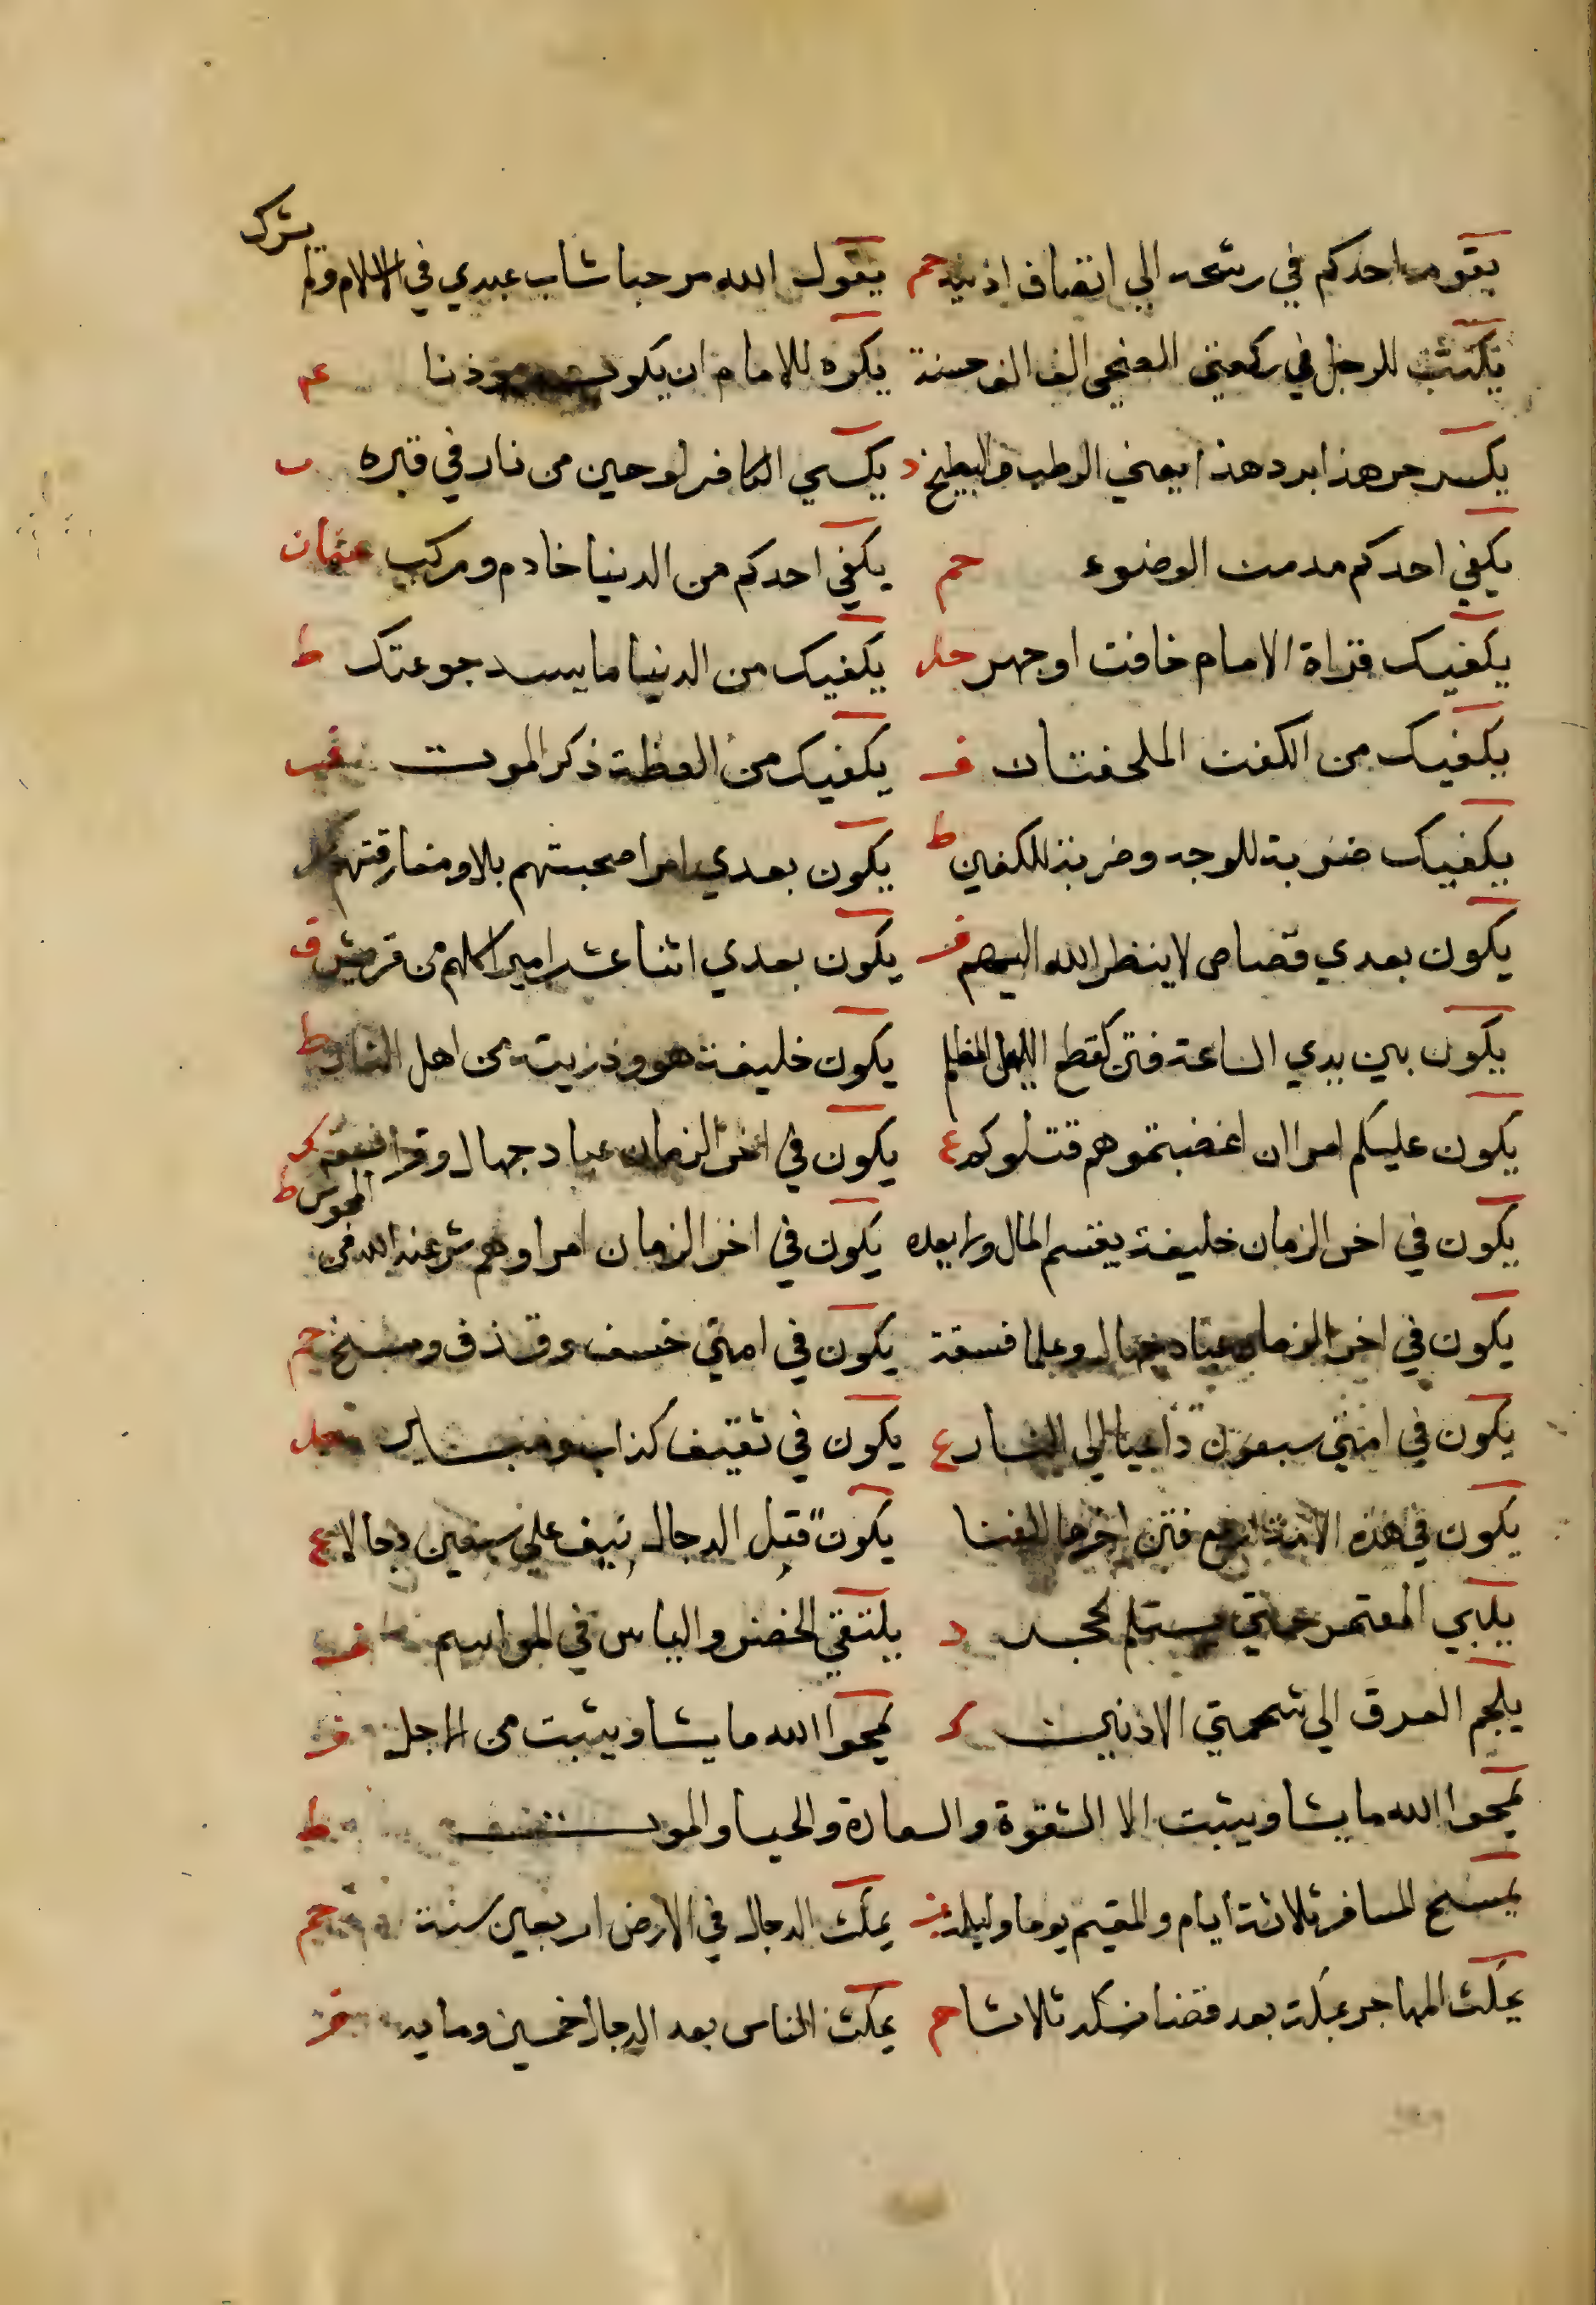 يقوم احدكم في رشحه الي انصاف اذنيه حم يقول الله مرحبا شاب عبدي في الاسلام ولم يشرك
يكتب للرجل في ركعتي الضحي الف الف حسنة يكره للامام ان يكون موذنا
يكسر حر هذا برد هذا يعني الرطب والبطيخ د يكسي الكافر لوحين من نار في قبره
يكفي احدكم مد من الوضوء حم يكفي احدكم من الدنيا خادم ومركب عثمان
يكفيك قراة الامام خافت او جهر يكفيك من الدنيا ما يسد جوعتك ط
يكفيك من الكفن الملحفتان ف يكفيك من العظة ذكر الموت
يكفيك ضربة للوجه وضربة للكفين ط يكون بعدي امرا صحبتهم بلا ومفارقتهم
يكون بعدي قصاص لا ينظر الله اليهم ف يكون بعدي اثنا عشر اميرا كلهم من قريش ق
يكون بين يدي الساعة فتن كقطع الليل المظلم يكون خليفة هو وذريته من اهل النار ط
يكون عليكم امرا ان اغضبتموهم قتلوكم ع يكون في اخر الزمان عباد جهال وقرا فسقة ك
يكون في اخر الزمان خليفة يقسم المال ولا يعده يكون في اخر الزمان امرا وهم شر عند الله من المجوس ط
يكون في اخر الزمان عباد جهال وعلما فسقة يكون في امتي خسف وقذف ومسخ حم
يكون في امتي سبعون داعيا الي النار ع يكون في ثقيف كذاب ومبير
يكون في هذه الامة اربع فتن اخرها الفنا يكون قبل الدجال نيف علي سبعين دجالا ع
يلبي المعتمر حتي يستلم الحجر د يلتقي الخضر والياس في المواسم
يلجم العرق الي شحمتي الاذنين ك يمحوا الله ما يشا ويثبت من الاجل ف
يمحوا الله ما يشا ويثبت الا الشقوة والسعادة والحيا والموت ط
يمسح المسافر ثلاثة ايام والمقيم يوما وليلة يمكث الدجال في الارض اربعين سنة حم
يمكث المهاجر بمكة بعد قضا نسكه ثلاثا م يمكث الناس بعد الدجال خمسين وماية